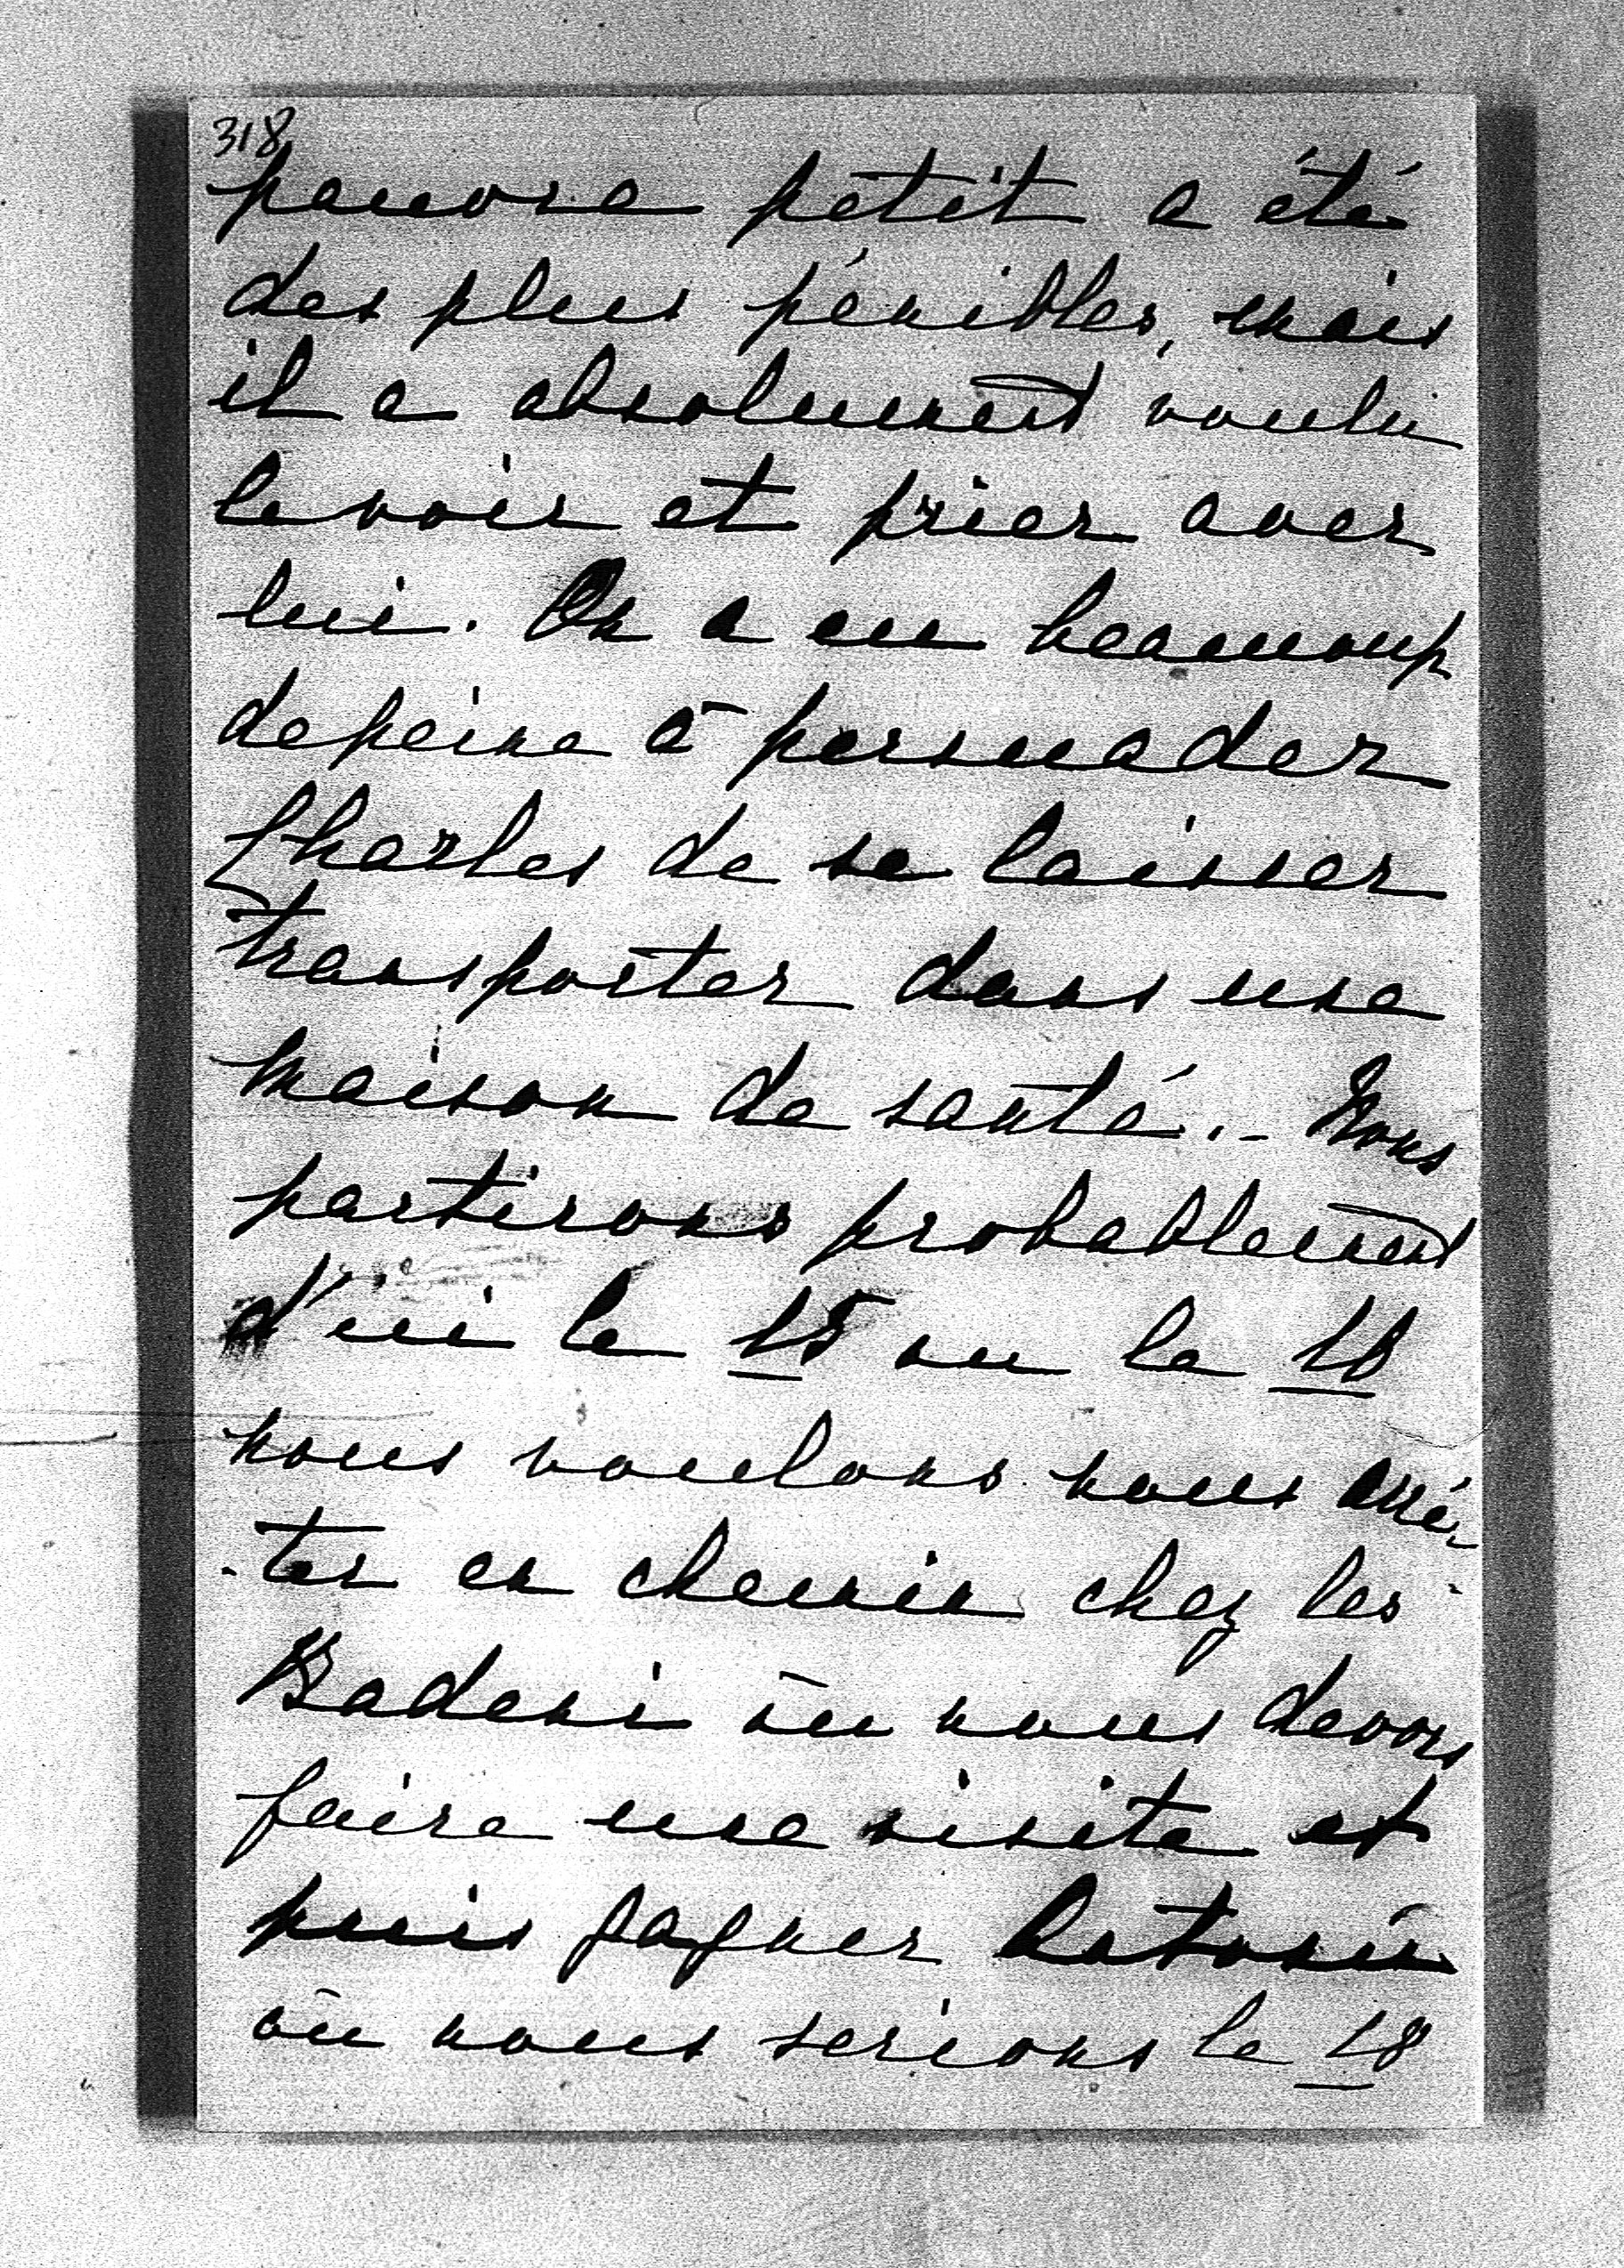 318
pauvre petit a été
des plus pénibles, mais
il a absolument voulu
le voir et prier avec
lui. On a eu beaucoup
de peine à persuader
Charles de se laisser
transporter dans une
maison de santé. - Nous
partirons probablement
d'ici le 15 ou le 16
nous voulons nous arrê-
-ter en chemin chez les
Badeni où nous devons
faire une visite et
puis gagner
où nous serions le 18